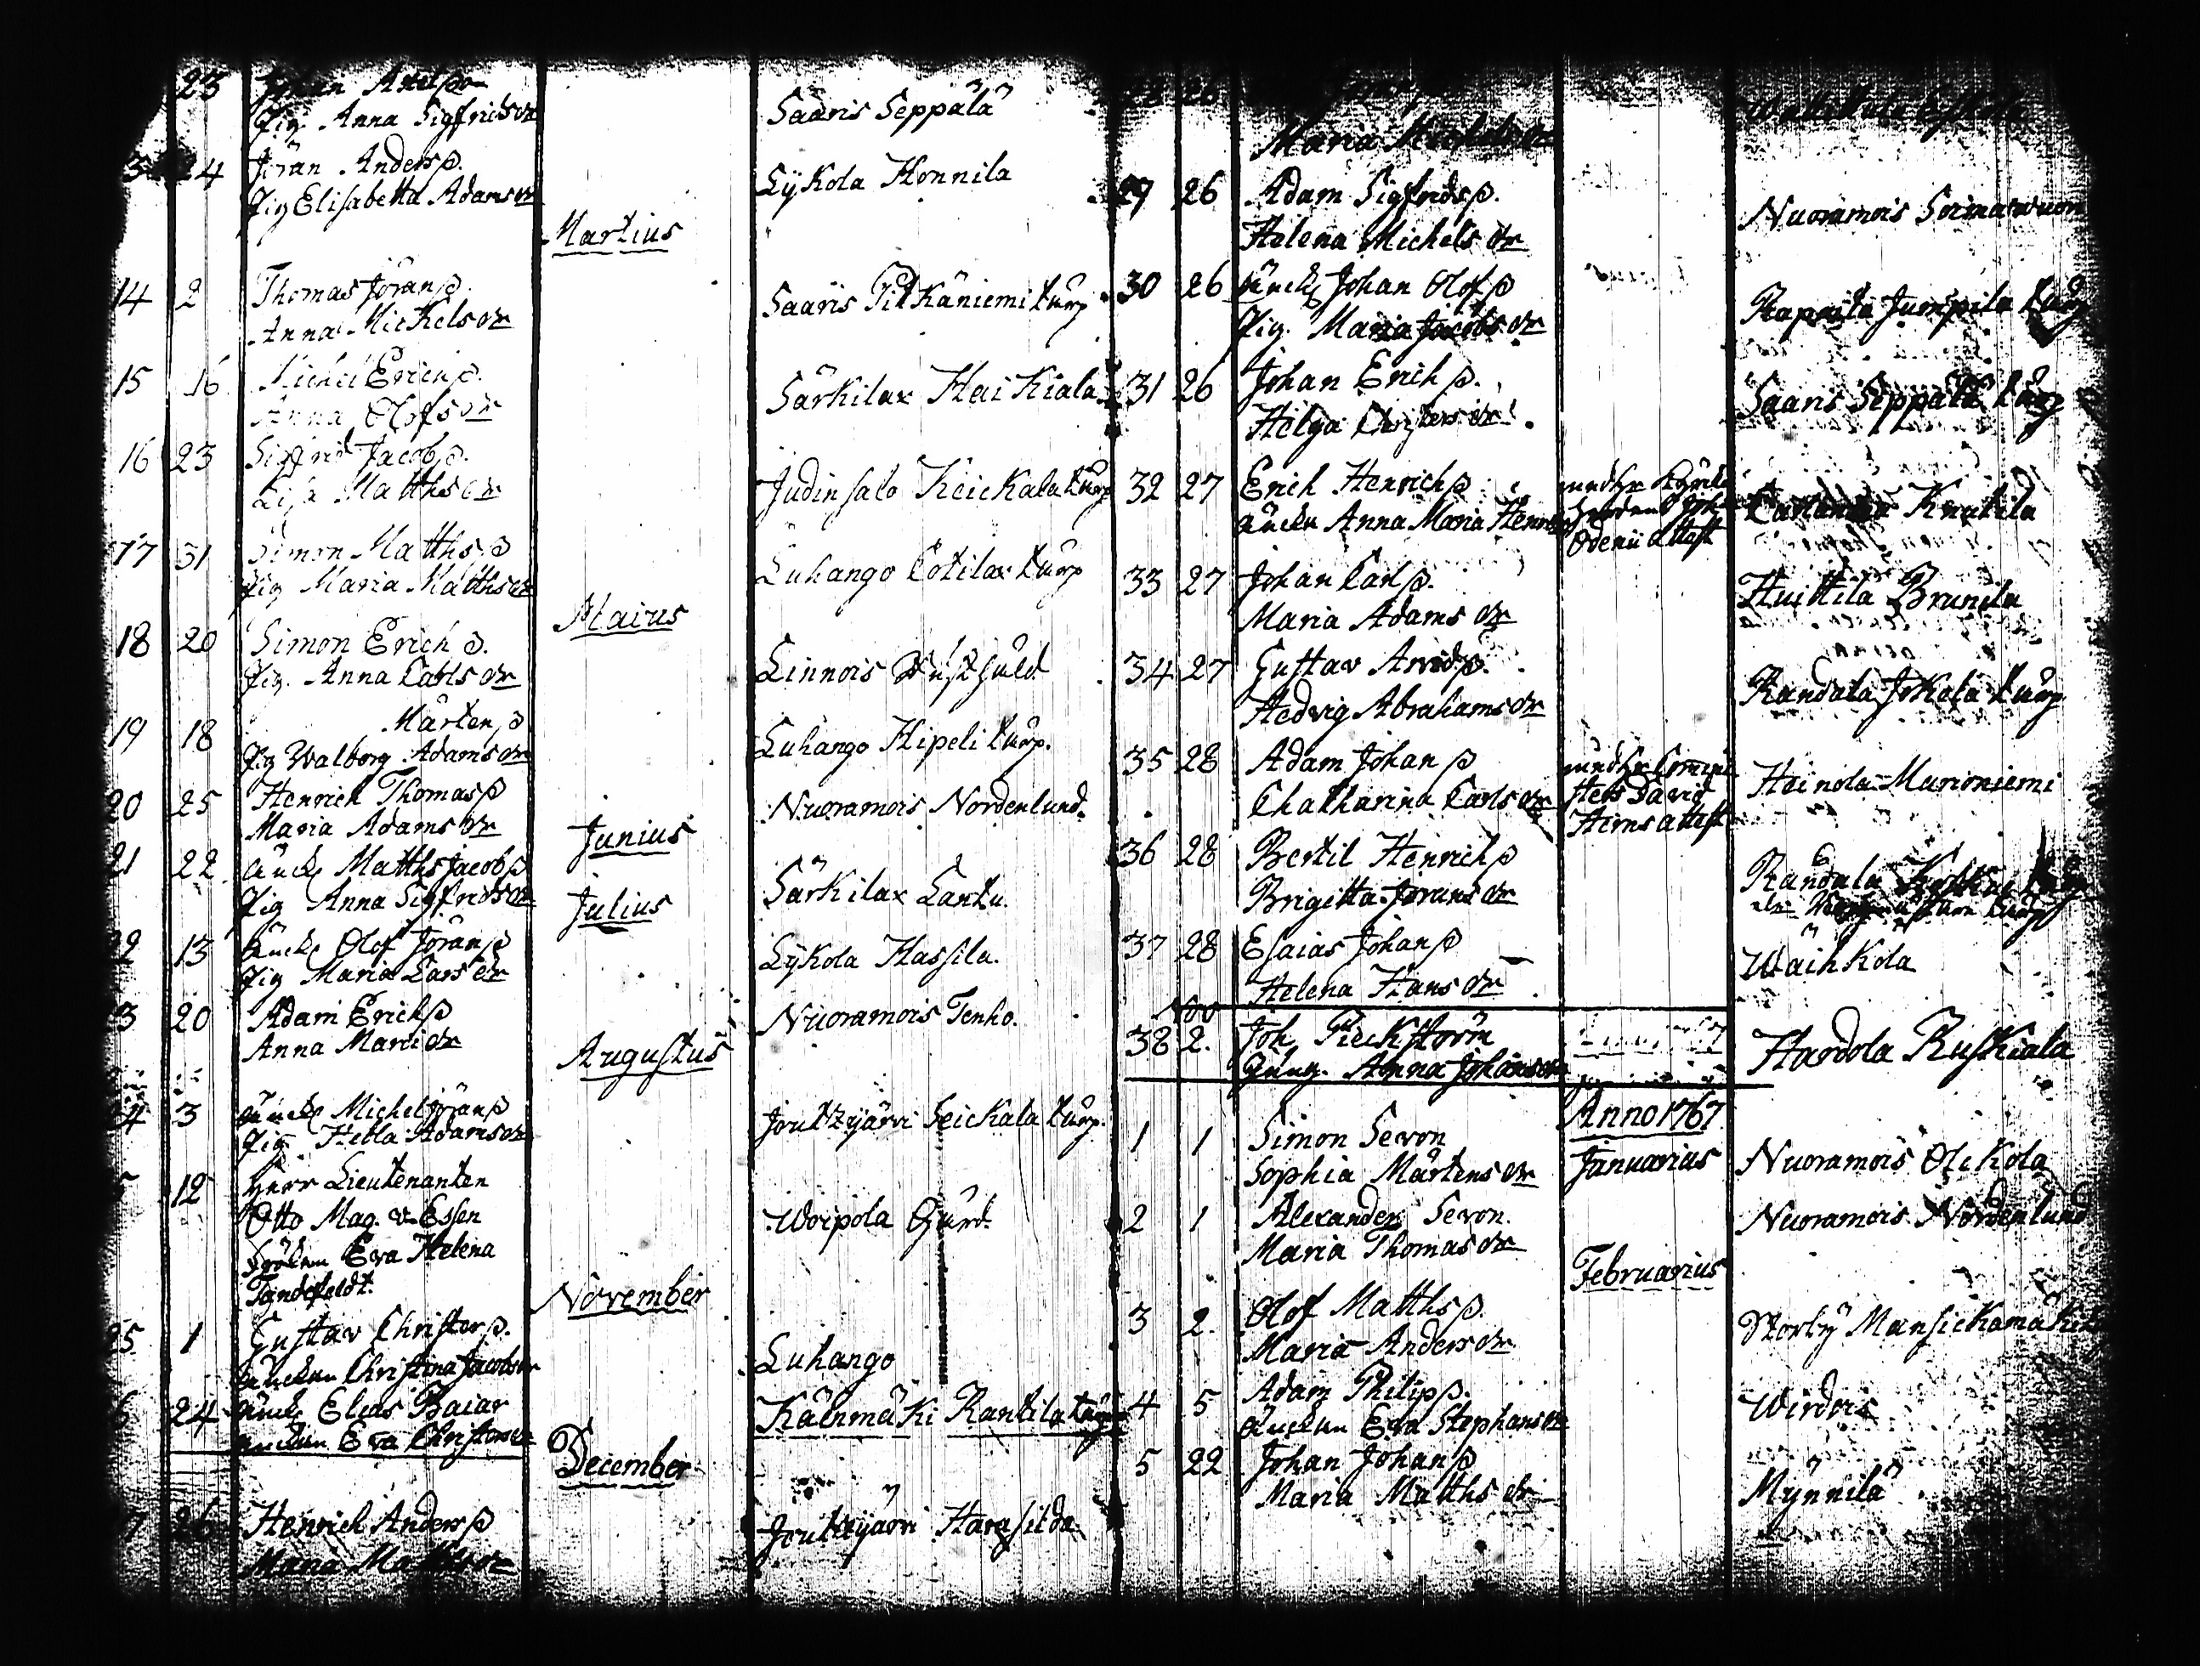 23 Johan Axelsson
Pig. Anna Sigfridsdr Saaris Seppälä
24 Jöran Anderss.
Pig Elisabetha Adamsdr Lykola Honnila
Martius
14 2 Thomas Jöranss.
Anna Michelsdr Saaris Pitkäniemi torp
15 16 Michel Erichss.
Anna Olofsdr Särkilax Haikiala
16 23 Sigfrid Jacobss.
Lisa Matthsdr Judinsalo Keickala torp
17 31 Simon Matthss
Pig Maria Matthsdr Luhango Cotilax torp
Maius
18 20 Simon Erichss.
Pig. Anna Carlsdr Linnois
19 18 Mårtenss
Pig Walborg Adamsdr Luhango Hipeli torp.
20 25 Henrich Thomass
Maria Adamsdr Nuoramois Nordenlund.
Junius
21 22 änck. Matths Jacobss
Pig Anna Sigfridsdr Särkilax Lantu.
Julius
22 13 Änck. Olof Jöranss
Pig Maria Larsdr Lykola Hassila.
3 20 Adam Erichss
Anna Marcidr Nuoramois Tenho.
Augustus
24 3 änck. Michel Jöranss
Pig Hebla Adamsdr Joutzjärvi Seickala torp.
12 Herr Lieutenanten
Otto Mag. v. Essen
Fröken Eva Helena Woipola Gård.
Tandefeldt.
November
25 1 Gustav Christerss.
änckan Christina Jacobsdr Luhango
6 24 änck. Elias Baiar
änckan Eva Christersdr Kälnmäki Rantila torp
December
7 26 Henrich Anderss
Anna Matthsdr Joutzjärvi Harasilda
Maria Michelsdr
29 26 Adam Sigfridss.
Helena Michelsdr Nuoramois
30 26 änck. Johan Olofss
Pig. Maria Jacobsdr Rapala Jumpila torp
31 26 Johan Erichss.
Helga Christersdr. Saaris Seppälä torp
32 27 Erich Henrichss
änckan Anna Maria Henricsdr Knutila
33 27 Johan Carlss.
Maria Adamsdr Huittila Brunila
34 27 Gustav Arvidss.
Hedvig Abrahamsdr Randala Jokela torp
35 28 Adam Johanss
Chatharina Carlsdr Heinola Marioniemi
36 28 Bertil Henrichss
Brigitta Jöransdr Randala
37 28 Esaias Johanss
Helena Hansdr Wäihkola
Nov
38 2. Joh. Pieckström
Anna Johansdr Hardola Ruskiala
Anno 1767
Januarius
1 1 Simon Sevon
Sophia Mårtensdr Nuoramois Olckola
2 1 Alexander Sevon.
Maria Thomasdr Nuoramois Nordenlund
Februarius
3 2. Olof Matthss.
Maria Andersdr Storby Mansickamäki
4 5 Adam Philipss.
Änckan Eva Stephansdr Wirdois
5 22 Johan Johanss
Maria Matthsdr Mynnilä